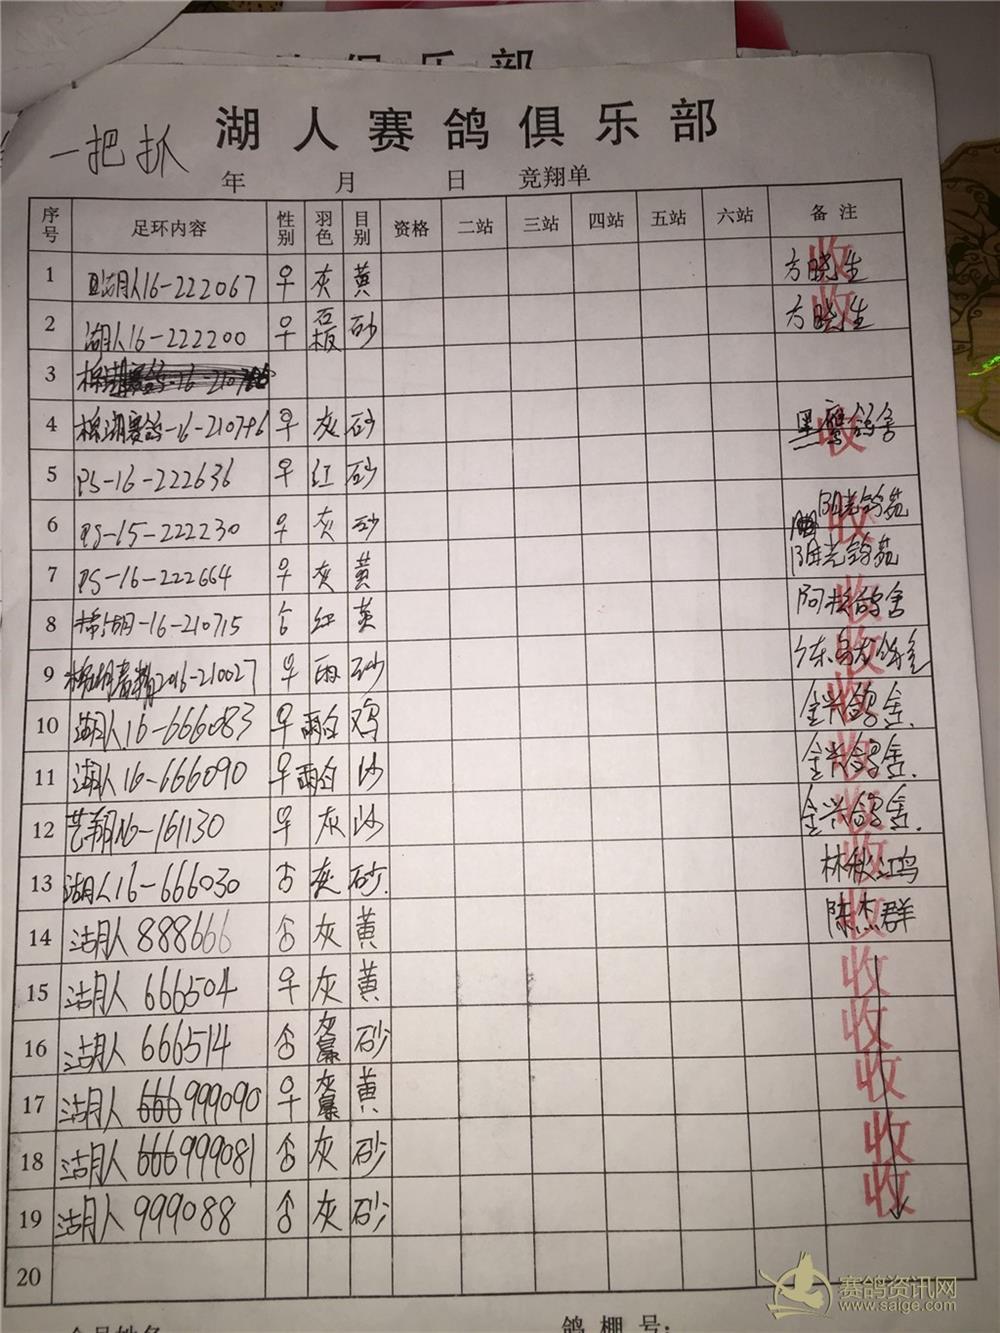 俱乐部
湖人赛鸽俱乐部
一把抓
年 月 日 竞翔单
序号 足环内容 性别 羽色 目别 资格 二站 三站 四站 五站 六站 备注
1 湖人16-222067 ♀ 灰 黄 方晓生 收
2 湖人16-222200 ♀ 石板 砂 方晓生 收
3
4 棉湖赛鸽-16-210746 ♀ 灰 砂 黑鹰鸽舍 收
5 PS-16-222636 ♀ 红 砂
6 PS-15-222230 ♀ 灰 砂 阳光鸽苑 收
7 PS-16-222664 ♀ 灰 黄 阳光鸽苑
8 棉湖-16-210715 ♂ 红 黄 阿松鸽舍 收
9 棉湖 2016-210027 ♀ 雨 砂 收
10 湖人16-666083 ♀ 雨白 鸡 金兴鸽舍. 收
11 湖人16-666090 ♀ 雨白 沙 金兴鸽舍. 收
12 艺翔16-161130 ♀ 灰 沙 金兴鸽舍. 收
13 湖人16-666030 ♂ 灰 砂. 林秋鸿 收
14 湖人 888666 ♂ 灰 黄 陈杰群 收
15 湖人 666504 ♀ 灰 黄 收
16 湖人 666514 ♂ 灰 砂 收
17 湖人 666999090 ♀ 灰 黄 收
18 湖人 666999081 ♂ 灰 砂 收
19 湖人 999088 ♂ 灰 砂 收
20
会员姓名 鸽棚号:
赛鸽资讯网
www.saige.com